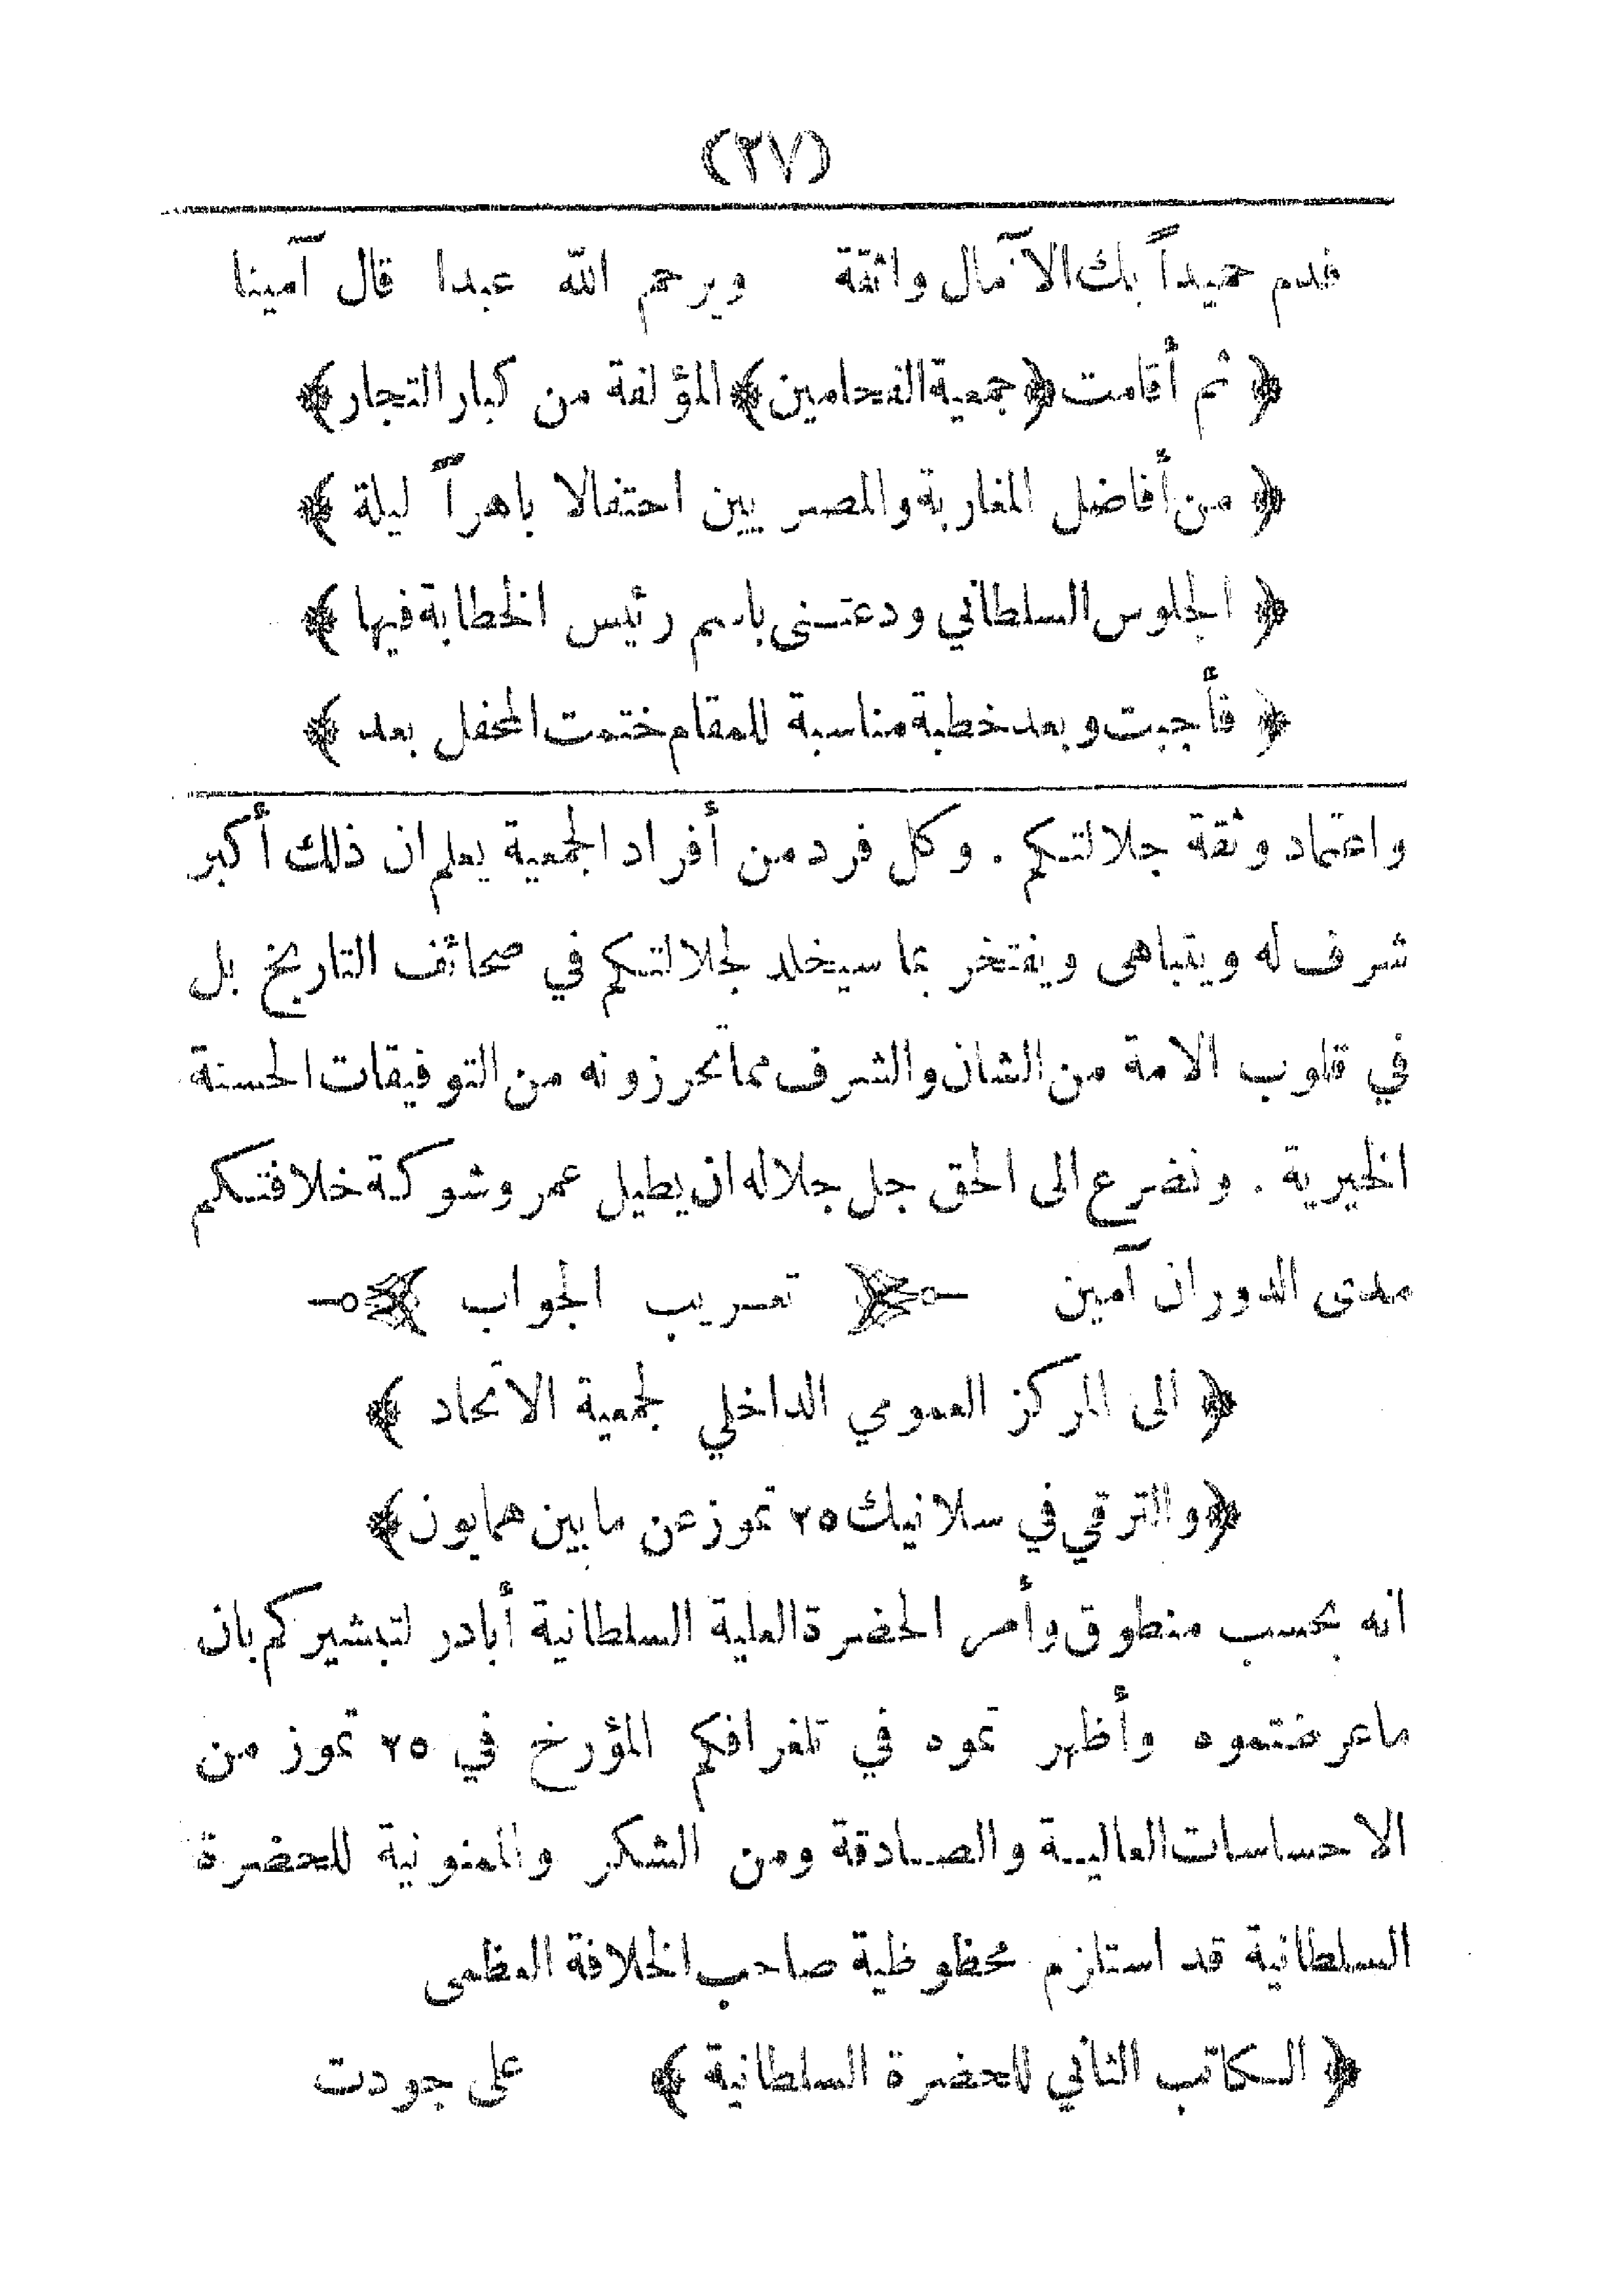 (٢٧)
فدم حميداً بك الآمال واثقة ويرحم الله عبدا قال آمينا
﴿ ثم أقامت ﴿جمعية الفحامين﴾ المؤلفة من كبار التجار ﴾
﴿ من أفاضل المغاربة والمصريين احتفالا باهراً ليلة ﴾
﴿ الجلوس السلطاني ودعتني باسم رئيس الخطابة فيها ﴾
﴿ فأجبت وبعد خطبة مناسبة للمقام ختمت المحفل بعد ﴾
واعتماد وثقة جلالتكم . وكل فرد من أفراد الجمعية يعلم ان ذلك أكبر
شرف له ويتباهى ويفتخر بما سيخلد لجلالتكم في صحائف التاريخ بل
في قلوب الامة من الشان والشرف مما تحرزونه من التوفيقات الحسنة
الخيرية . ونضرع الى الحق جل جلاله ان يطيل عمر وشوكة خلافتكم
مدى الدوران آمين ﴿ تعريب الجواب ﴾
﴿ الى المركز العمومي الداخلي لجمعية الاتحاد ﴾
﴿ والترقي في سلانيك ٢٥ تموز عن مابين همايون ﴾
انه بحسب منطوق وأمر الحضرة العلية السلطانية أبادر لتبشيركم بان
ماعرضتموه وأظهر تموه في تلغرافكم المؤرخ في ٢٥ تموز من
الاحساسات العالية والصادقة ومن الشكر والممنونية للحضرة
السلطانية قد استلزم محظوظية صاحب الخلافة العظمى
﴿ الكاتب الثاني للحضرة السلطانية ﴾ على جودت